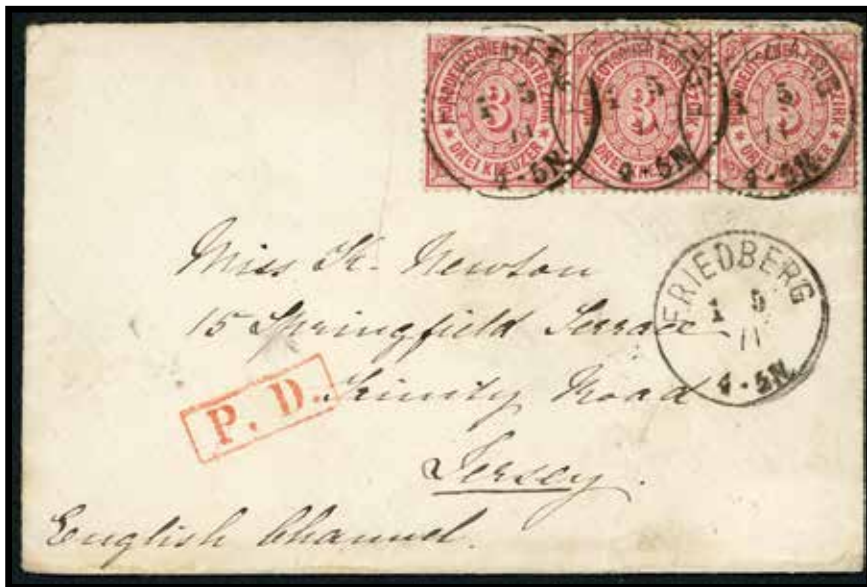 NORDDEUTSCHER POSTBEZIRK
3
* DREI KREUZER *
NORDDEUTSCHER POSTBEZIRK
3
DREI KREUZER
NORDDEUTSCHER POSTBEZIRK
3
DREI KREUZER
1 5
11
4-5N
1 5
4-5N
1 5
11
4-5N
FRIEDBERG
1 5
11
4-5N.
Miss K. Newton
15 Springfield Terrace
Trinity Road
Jersey.
English Channel.
P. D.